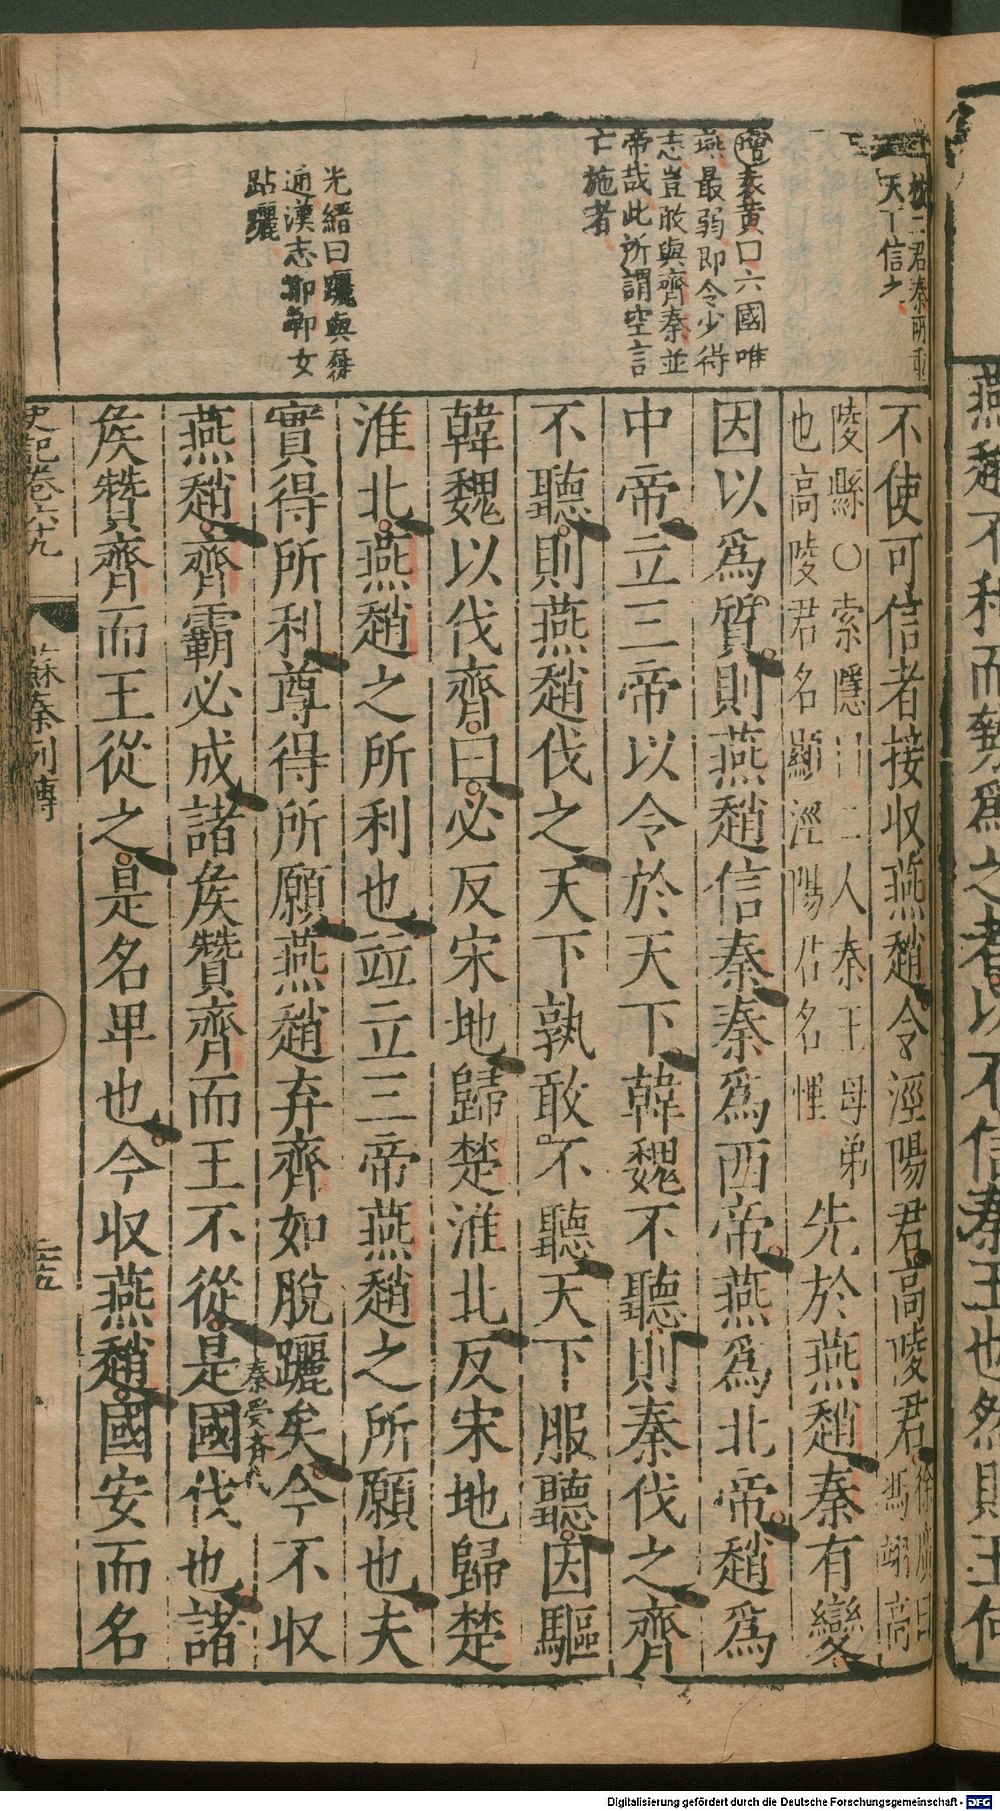 按二君秦所重
天下信之
增袁黃曰六國唯
燕最弱即令少得
志豈敢與齊秦並
帝哉此所謂空言
亡施者
光縉曰躧與屣
通漢志邯鄲女
跕躧
不使可信者接收燕趙令涇陽君高陵君徐廣曰
馮翊高
陵縣〇索隱曰二人秦王母弟
也高陵君名顯涇陽君名悝
先於燕趙秦有變
因以爲質則燕趙信秦秦爲西帝燕爲北帝趙爲
中帝立三帝以令於天下韓魏不聽則秦伐之齊
不聽則燕趙伐之天下孰敢不聽天下服聽因驅
韓魏以伐齊曰必反宋地歸楚淮北反宋地歸楚
淮北燕趙之所利也竝立三帝燕趙之所願也夫
實得所利尊得所願燕趙弃齊如脫躧矣今不収
秦受齊伐
燕趙齊霸必成諸矦贊齊而王不從是國伐也諸
矦贊齊而王從之是名卑也今収燕趙國安而名
史記卷六十九
蘇秦列傳
二十五
燕趙不利而勢爲之者以不信秦王也然則王何
Digitalisierung gefördert durch die Deutsche Forschungsgemeinschaft - DFG